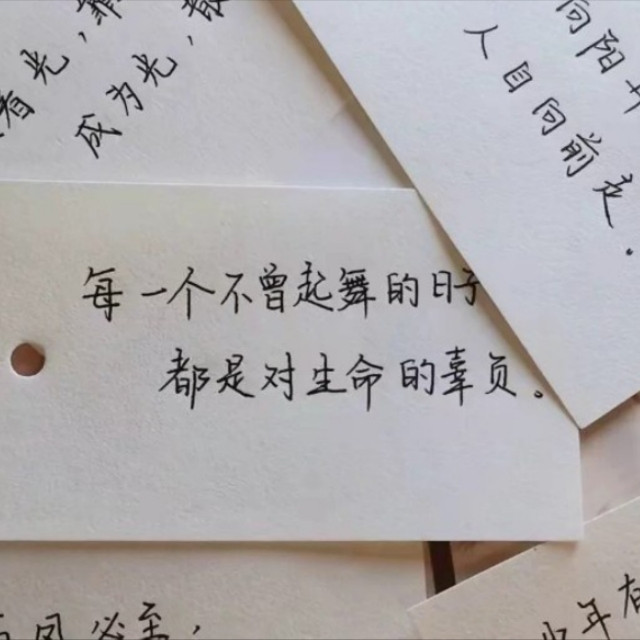 着光,
成为光,
向阳
人自向前走.
每一个不曾起舞的日子
都是对生命的辜负。
风必至,
少年